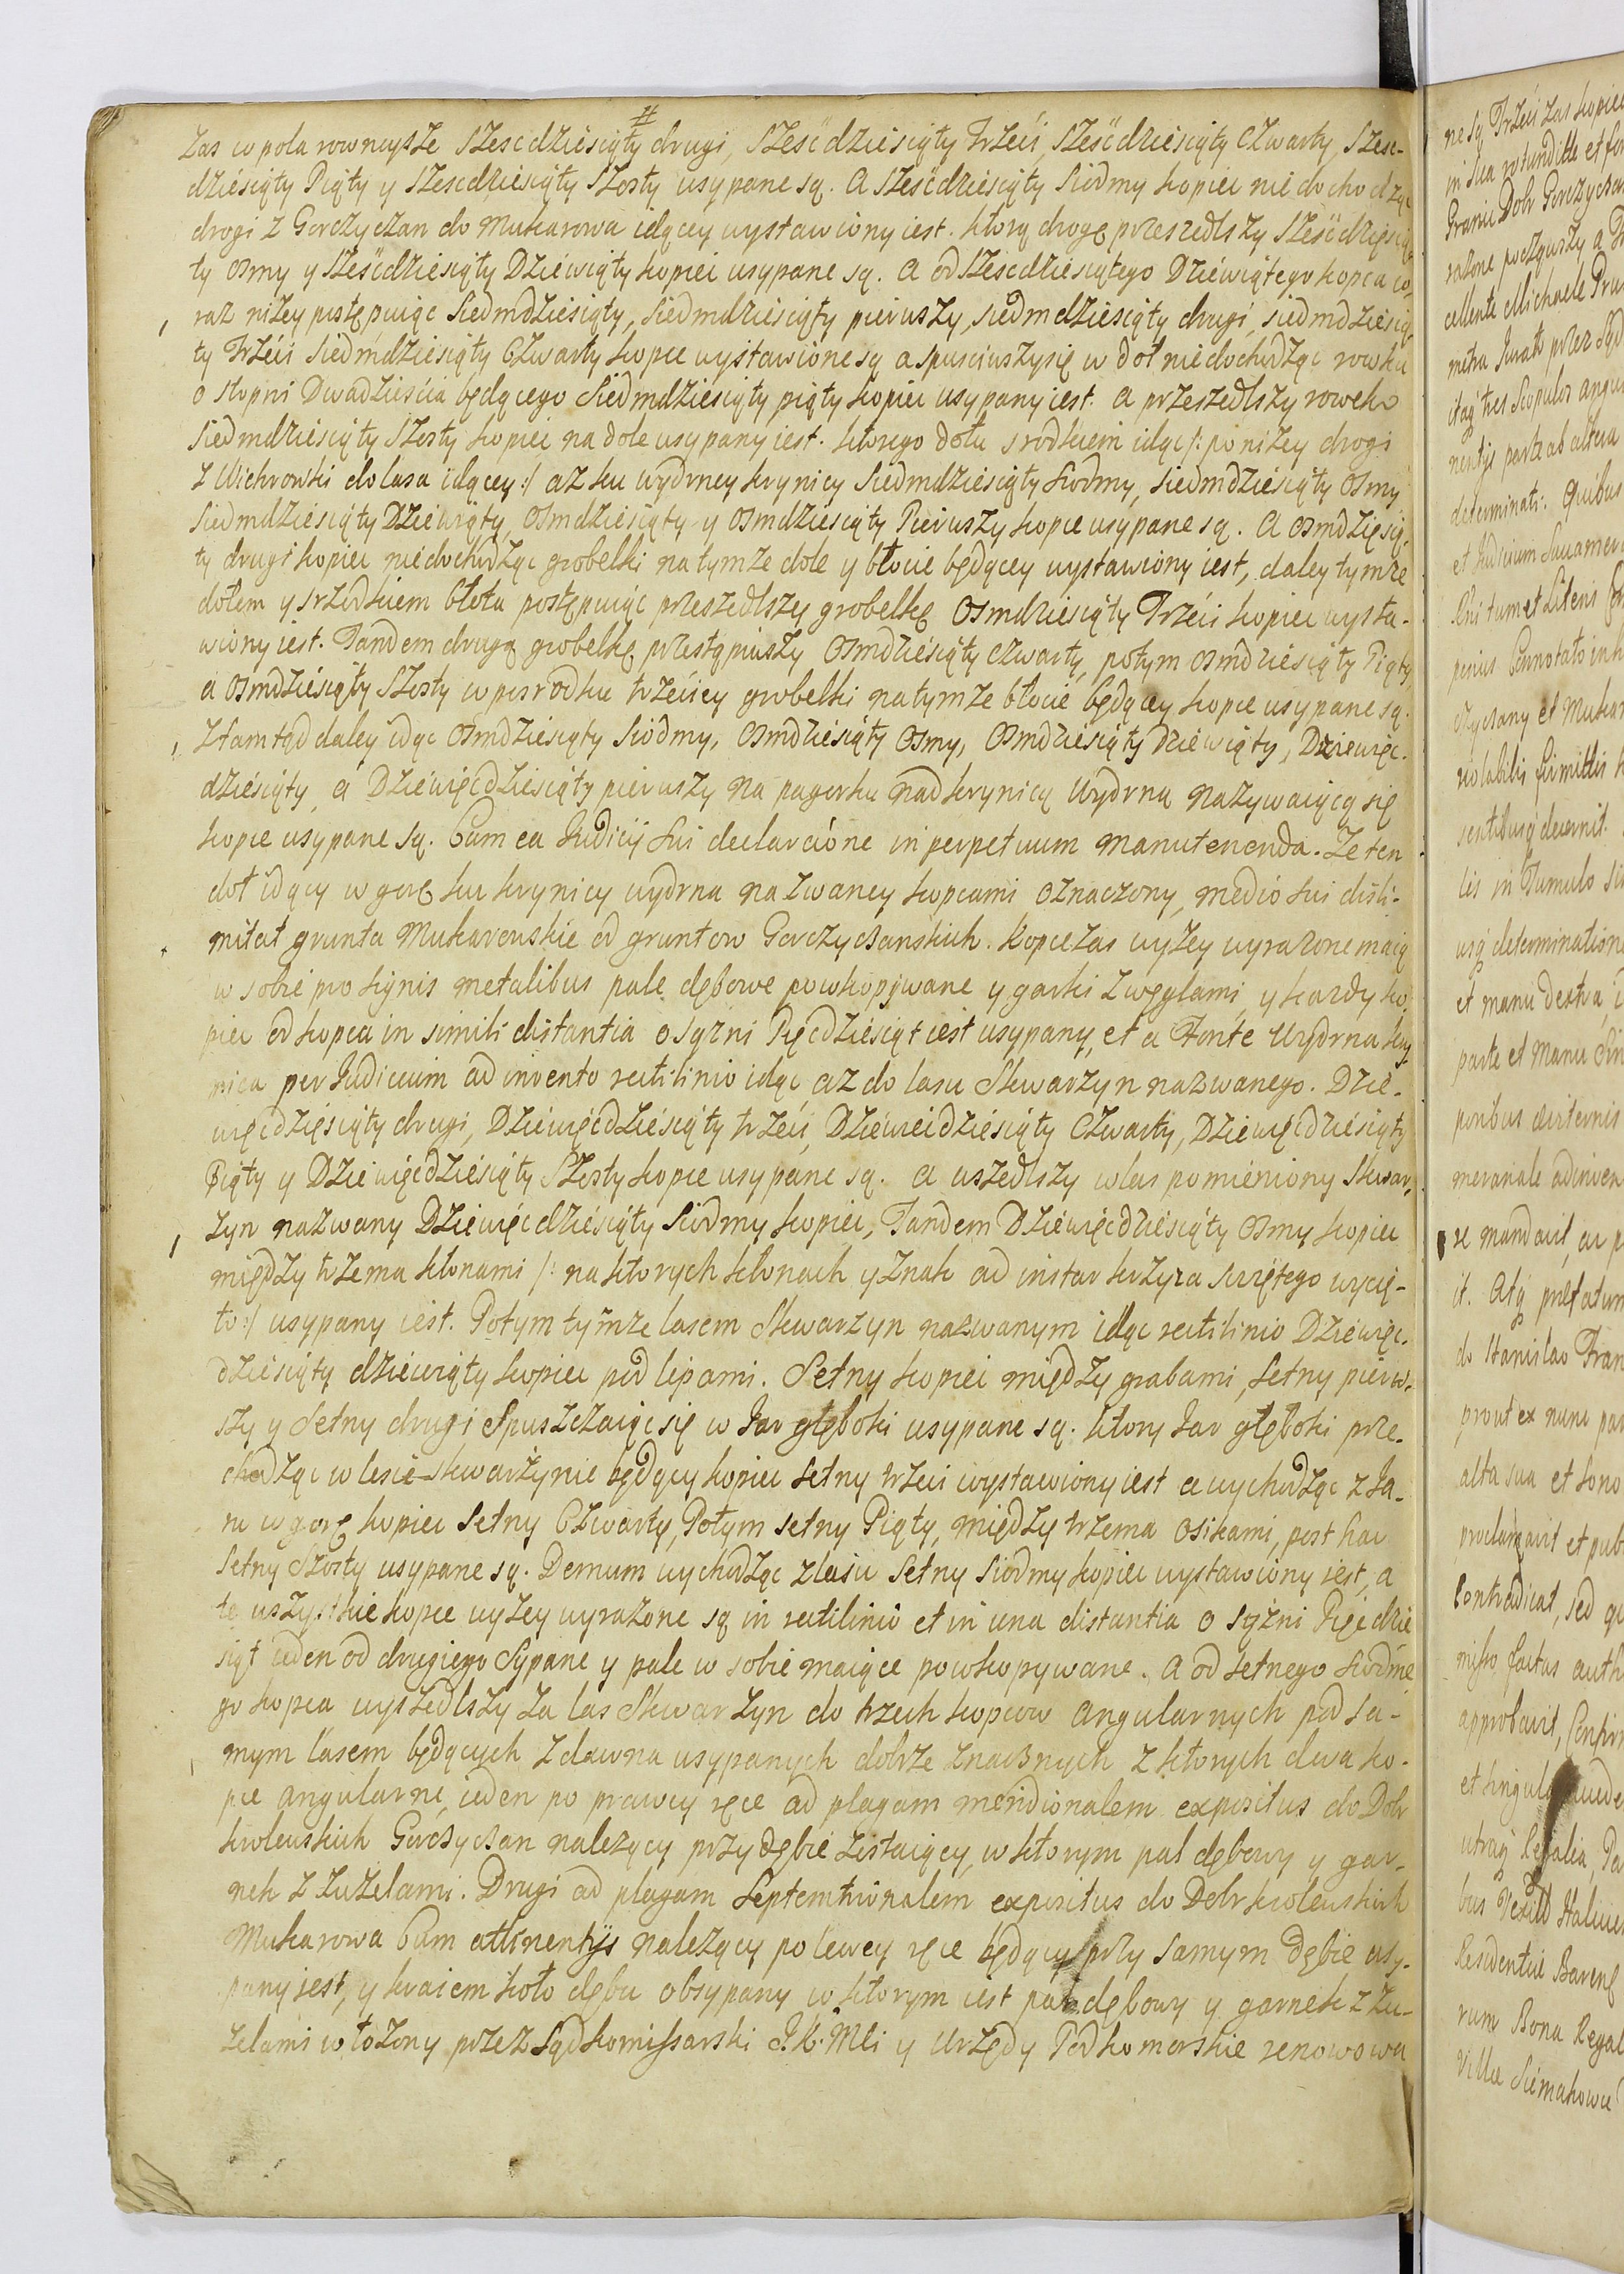 zas w pola rownieysze Szescdziesiąty drugi, Szescdziesiąty Trzeci, Szescdziesiąty Czwarty, Szesc-
dziesiąty Piąty y Szescdziesiąty Szosty usypane są. A Szescdziesiąty Siodmy kopiec nie dochodząc
drogi z Gorczyczan do Mukarowa idącey wystawiony iest. ktorą drogę przeszedłszy Szescdziesią
ty Osmy y Szescdziesiąty Dziewiąty kopiec usypane są. a od Szescdziesiątego Dziewiątego kopca co,
raz niżey postępuiąc Siedmdziesiąty, Siedmdziesiąty pierwszy, siedmdziesiąty drugi, siedmdziesią
ty Trzeci Siedmdziesiąty Czwarty kopce wystawione są a spusciwszysię w doł niedochodząc rowku
o stopni Dwadziescia będącego Siedmdziesiąty piąty kopiec usypany iest. a przeszedłszy rowek
Siedmdziesiąty Szosty kopiec na dole usypany iest. ktorego dołu srodkiem idąc /: po niżey drogi
z Wichrowki do lasa idącey :/ az ku wydrney krynicy Siedmdziesiąty Siodmy, Siedmdziesiąty Osmy
Siedmdziesiąty Dziewiąty, Osmdziesiąty y Osmdziesiąty Pierwszy kopce usypane są. A Osmdziesią,
ty drugi kopiec niedochodząc grobelki na tymze dole y błocie będącey wystawiony iest, daley tymze
dołem y srzodkiem błota postępuiąc przeszedłszy grobelkę Osmdziesiąty Trzeci kopiec wysta-
wiony iest. Tandem drugą grobelkę przestąpiwszy Osmdziesiąty czwarty, potym osmdziesiąty Piąty,
a Osmdziesiąty Szosty w posrodku trzeciey grobelki na tymze błocie będącey kopce usypane są.
Ztamtąd daley idąc Osmdziesiąty Siodmy, Osmdziesiąty Osmy, Osmdziesiąty Dziewiąty, Dziewięc-
dziesiąty, a Dziewięcdziesiąty pierwszy na pagorku nad krynicą Wydrna nazywaiącą się
kopce usypane są. Cum ea Judicij sui declaratione in perpetuum manutenenda. Ze ten
doł idący w gorę ku krynicy wydrna nazwaney kopcami oznaczony, medio sui disli-
mitat grunta Mukarowskie od gruntow Gorczyczanskich. Kopce zas wyżey wyrazone maią
w sobie pro signis metalibus pale dębowe powkopywane y garki z węglami, y kazdy ko,
piec od kopca in simili distantia o sązni Pięcdziesiąt iest usypany, et a Fonte Wydrna kry
nica per Judicium adinvento rectilinio idąc, az do lasu Skwarzyn nazwanego. Dzie-
więcdziesiąty drugi, Dziewięcdziesiąty trzeci, Dziewięcdziesiąty Czwarty, Dziewięcdziesiąty
Piąty y Dziewięcdziesiąty Szosty kopce usypane są. a wszedłszy w las pomieniony Skwar,
zyn nazwany Dziewięcdziesiąty Siodmy kopiec, Tandem Dziewięcdziesiąty Osmy kopiec
między trzema klonami /: na ktorych klonach y znak ad instar krzyza swiętego wycię-
to :/ usypany iest. Potym tymze lasem Skwarzyn nazwanym idąc rectilinio Dziewięc-
dziesiąty dziewiąty kopiec pod lipami. Setny kopiec między grabami, setny pierw-
szy y Setny drugi Spuszczaiąc się w Jar głęboki usypane są. ktory Jar głęboki prze-
chodząc w lesie Skwarzynie będący kopiec setny trzeci wystawiony iest a wychodząc z Ja-
ru w gorę kopiec setny Czwarty, Potym setny Piąty, między trzema osikami, post hac
Setny Szosty usypane są. Demum wychodząc z lasu Setny Siodmy kopiec wystawiony iest, a
te wszystkie kopce wyżey wyrazone są in rectilinio et in una distantia o sązni Pięcdzie
siąt ieden od drugiego Sypane y pale w sobie maiące powkopywane. A od setnego siodme
go kopca wyszedłszy za las Skwarzyn do trzech kopcow angularnych pod sa-
mym lasem będących z dawna usypanych dobrze znacznych z ktorych dwa ko-
pce angularne, ieden po prawey ręce ad plagam meridionalem expositus do Dobr
krolewskich Gorczyczan nalezący przy dębie zostaiący, w ktorym pal dębowy y gar-
nek z zuzelami. Drugi ad plagam Septemtrionalem expositus do Dobr krolewskich
Mukarowa Cum attinentijs nalezący po lewey ręce będący przy samym dębie usy-
pany iest, y kraiem koło dębu obsypany w ktorym iest pal dębowy y garnek z zu-
zelami włozony przez Sąd komissarski J. K. Mci y Urzędy Podkomorskie renowowa
ne są Trzeci zas kopiec
in sua rotunditte et for
Granic Dobr Gorczyczan
razone począwszy a
cellente Michaele Pru
metra Jurato przez Sąd
itaq tres Scopulos angu
nentijs parte ab altera
determinati: Quibus
et Judicium
perius Connotato
czyczany et Mukar
violabilis firmitatis
decernit.
lis in Tumulo
usq determinatione
et manu dextra
parte et Manu Sin
poribus aviternis
meraniale adinven
re mandavit, ac p
it. Atq prefatum
do Stanislao Fran
prout ex nunc par
alta sua et sono
proclamavit et pub
Contradicat, sed qu
misso factus auth
approbavit, Confir
et singula
utraq Regalia
Residentiae
rum Bona Regal
Villae Siemakowce